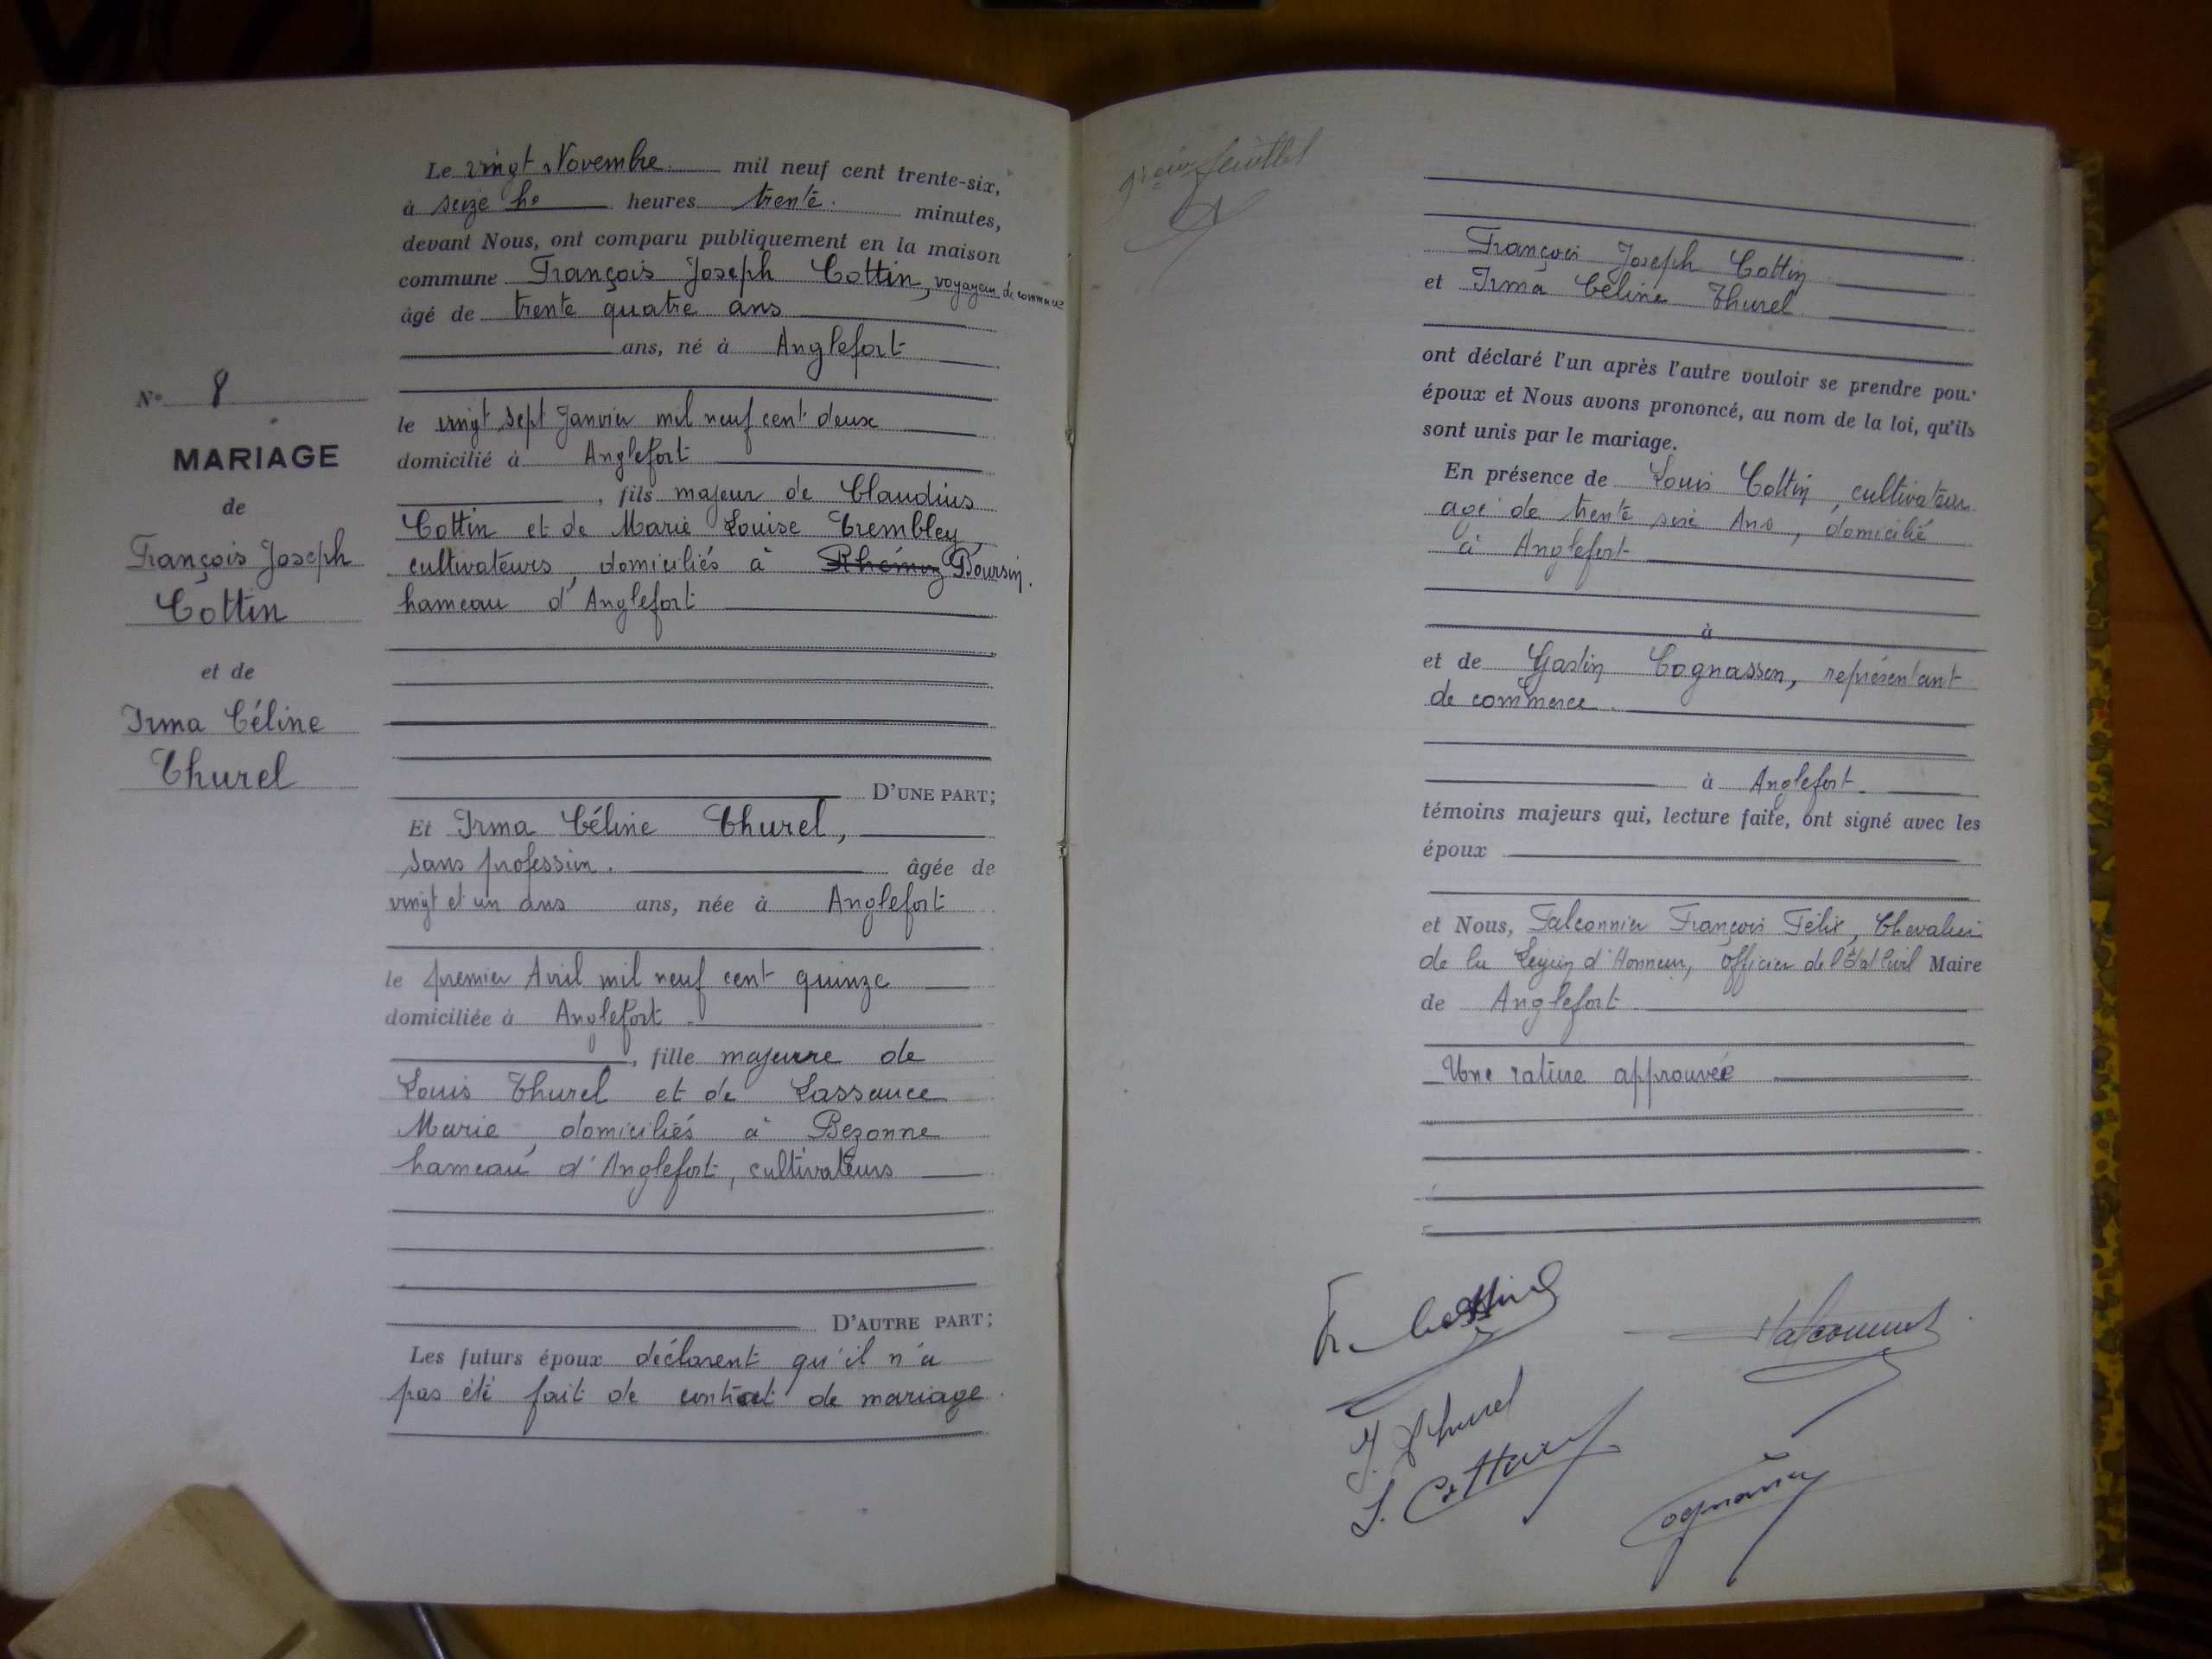 Le vingt Novembre mil neuf cent trente-six,
à seize hes heures trente minutes,
devant Nous, ont comparu publiquement en la maison
commune François Joseph Cottin, voyageur de commerce
âgé de trente quatre ans
ans, né à Anglefort
le vingt sept Janvier mil neuf cent deux
domicilié à Anglefort
, fils majeur de Claudius
Cottin et de Marie Louise Trembley,
cultivateurs, domiciliés à Rhémoz Boursin.
hameau d'Anglefort
D'UNE PART;
Et Irma Céline Thurel,
sans profession. âgée de
vingt et un ans ans, née à Anglefort
le premier Avril mil neuf cent quinze
domiciliée à Anglefort
, fille majeure de
Louis Thurel et de Lassauce
Marie, domiciliés à Bezonne
hameau d'Anglefort, cultivateurs
D'AUTRE PART;
Les futurs époux déclarent qu'il n'a
pas été fait de contrat de mariage.
N° 8
MARIAGE
de
François Joseph
Cottin
et de
Irma Céline
Thurel
feuillet
François Joseph Cottin
et Irma Céline Thurel
ont déclaré l'un après l'autre vouloir se prendre pour
époux et Nous avons prononcé, au nom de la loi, qu'ils
sont unis par le mariage.
En présence de Louis Cottin, cultivateur
agé de trente six Ans, domicilié
à Anglefort
à
et de Gaston Cognasson, représentant
de commerce.
à Anglefort
témoins majeurs qui, lecture faite, ont signé avec les
époux
et Nous, Falconnier François Félix, Chevalier
de la Légion d'Honneur, officier de l'État Civil Maire
de Anglefort
Une rature approuvée
Fr. Cottin
Falconnier
I. Thurel
L. Cottin
Cognasson